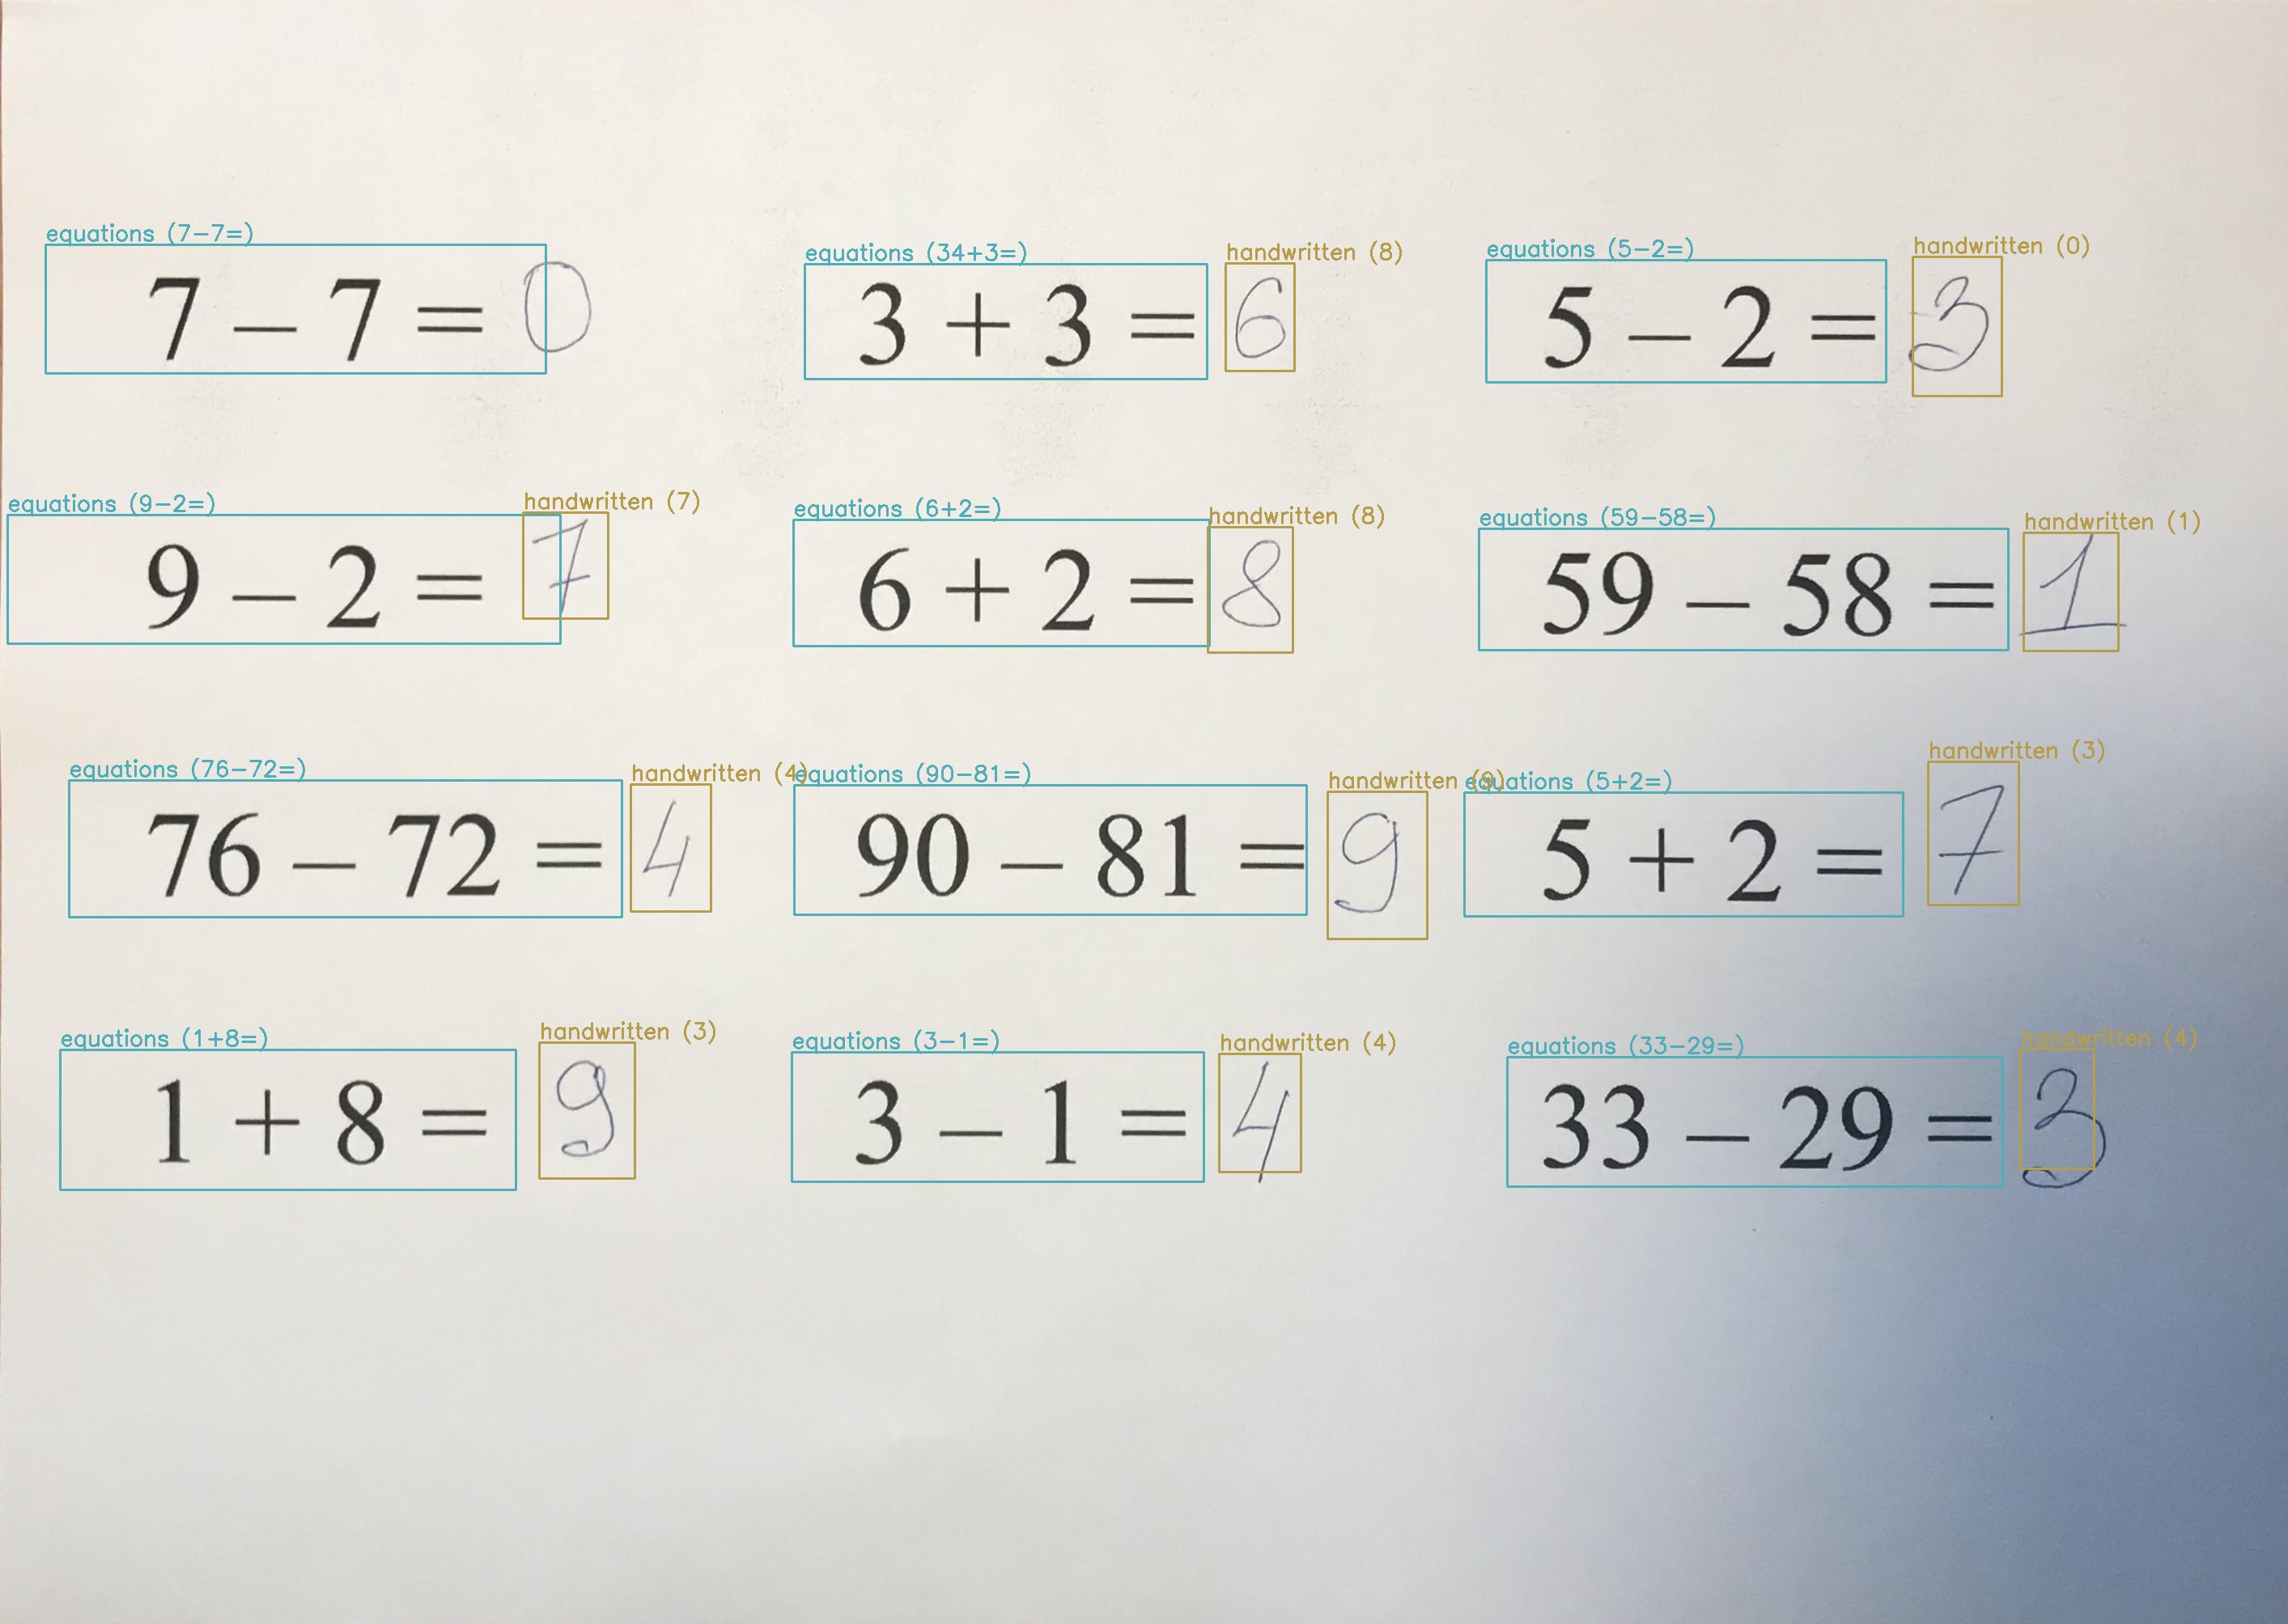 equations (7-7=) equations (34+3=) handwritten (8) equations (5-2=) handwritten (0)
7 – 7 = 0 3 + 3 = 6 5 – 2 = 3
equations (9-2=) handwritten (7) equations (6+2=) handwritten (8) equations (59-58=) handwritten (1)
9 – 2 = 7 6 + 2 = 8 59 – 58 = 1
equations (76-72=) handwritten (4) equations (90-81=) handwritten (9) equations (5+2=) handwritten (3)
76 – 72 = 4 90 – 81 = 9 5 + 2 = 7
equations (1+8=) handwritten (3) equations (3-1=) handwritten (4) equations (33-29=) handwritten (4)
1 + 8 = 9 3 – 1 = 4 33 – 29 = 3